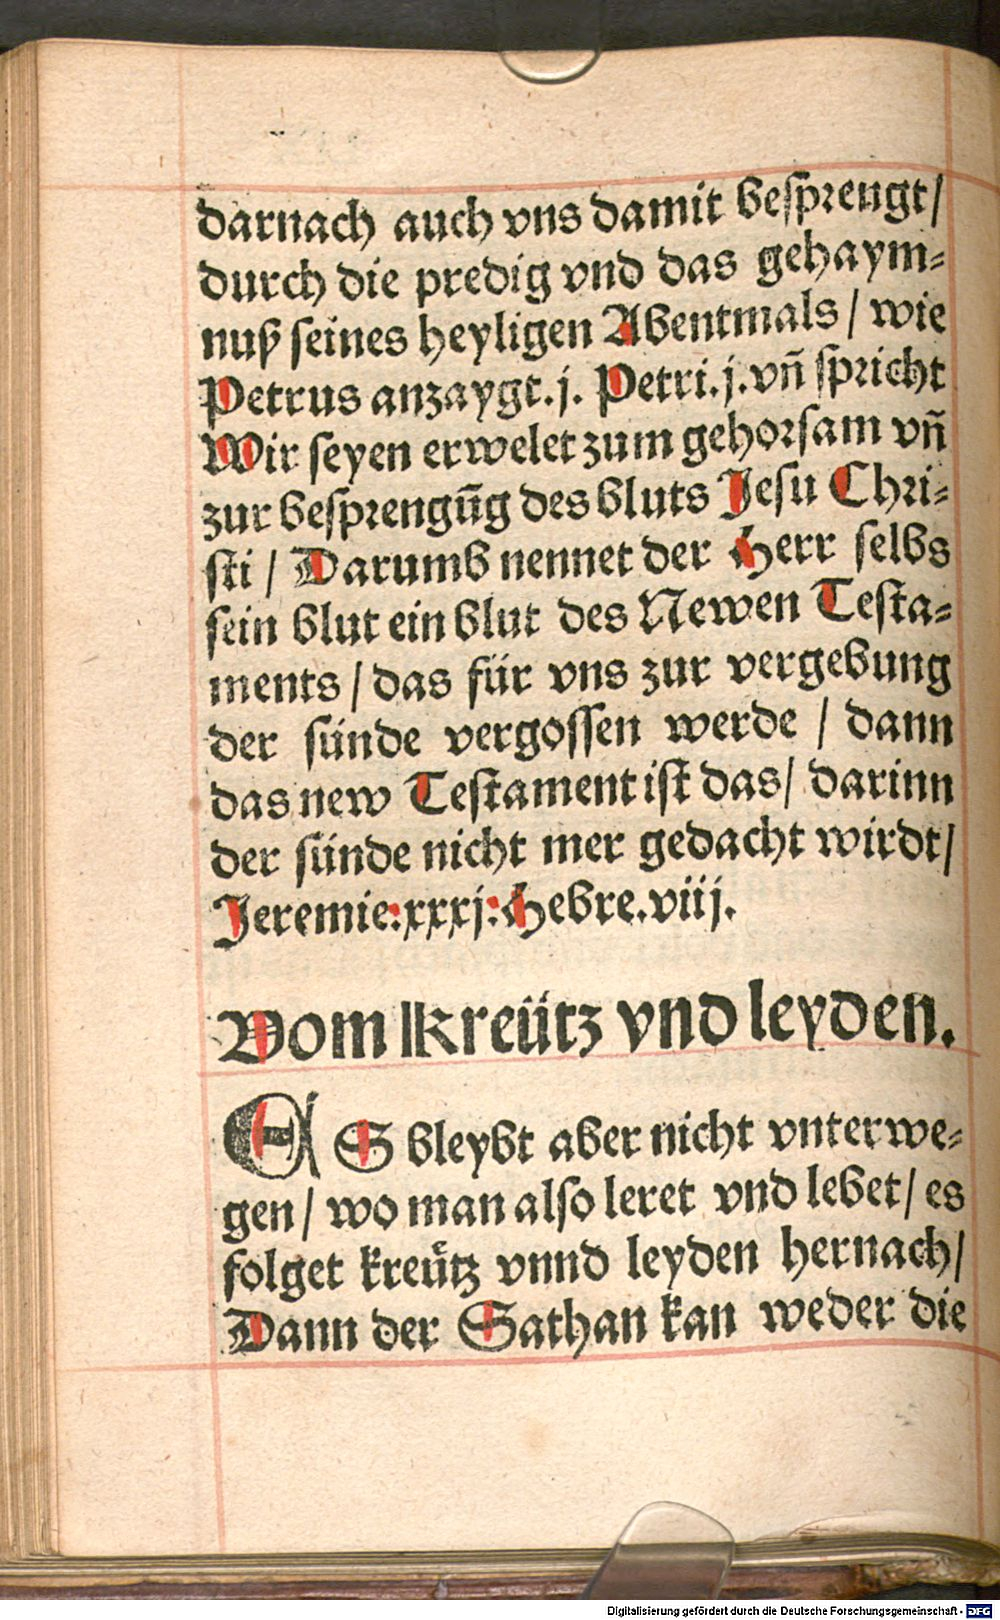 darnach auch vns damit besprengt/
durch die predig vnd das gehaym-
nuß seines heyligen Abentmals / wie
Petrus anzaygt. j. Petri. j. vñ spricht
Wir seyen erwelet zum gehorsam vñ
zur besprengūg des bluts Jesu Chri-
sti / Darumb nennet der Herr selbs
sein blut ein blut des Newen Testa-
ments / das für vns zur vergebung
der sünde vergossen werde / dann
das new Testament ist das / darinn
der sünde nicht mer gedacht wirdt/
Jeremie: xxxj: Hebre. viij.
Vom Kreütz vnd leyden.
ES bleybt aber nicht vnterwe-
gen / wo man also leret vnd lebet / es
folget kreütz vnnd leyden hernach/
Dann der Sathan kan weder die
Digitalisierung gefördert durch die Deutsche Forschungsgemeinschaft - DFG